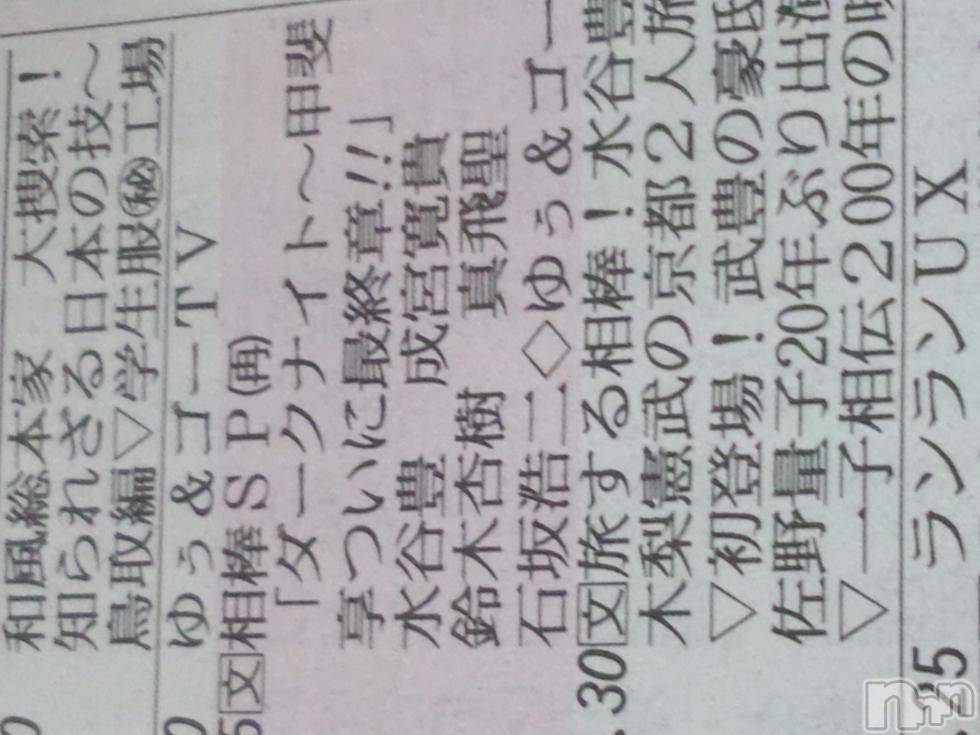 和風総本家　大捜索！
知られざる日本の技～
鳥取編▽学生服㊙工場
ゆぅ＆ゴーTV
5文相棒SP(再)
「ダークナイト～甲斐
享ついに最終章!!」
水谷豊　成宮寛貴
鈴木杏樹　真飛聖
石坂浩二◇ゆぅ＆ゴー
.30文旅する相棒！水谷豊
木梨憲武の京都2人旅
▽初登場！武豊の豪邸
佐野量子20年ぶり出演
▽一子相伝200年の
ランランUX
n+n